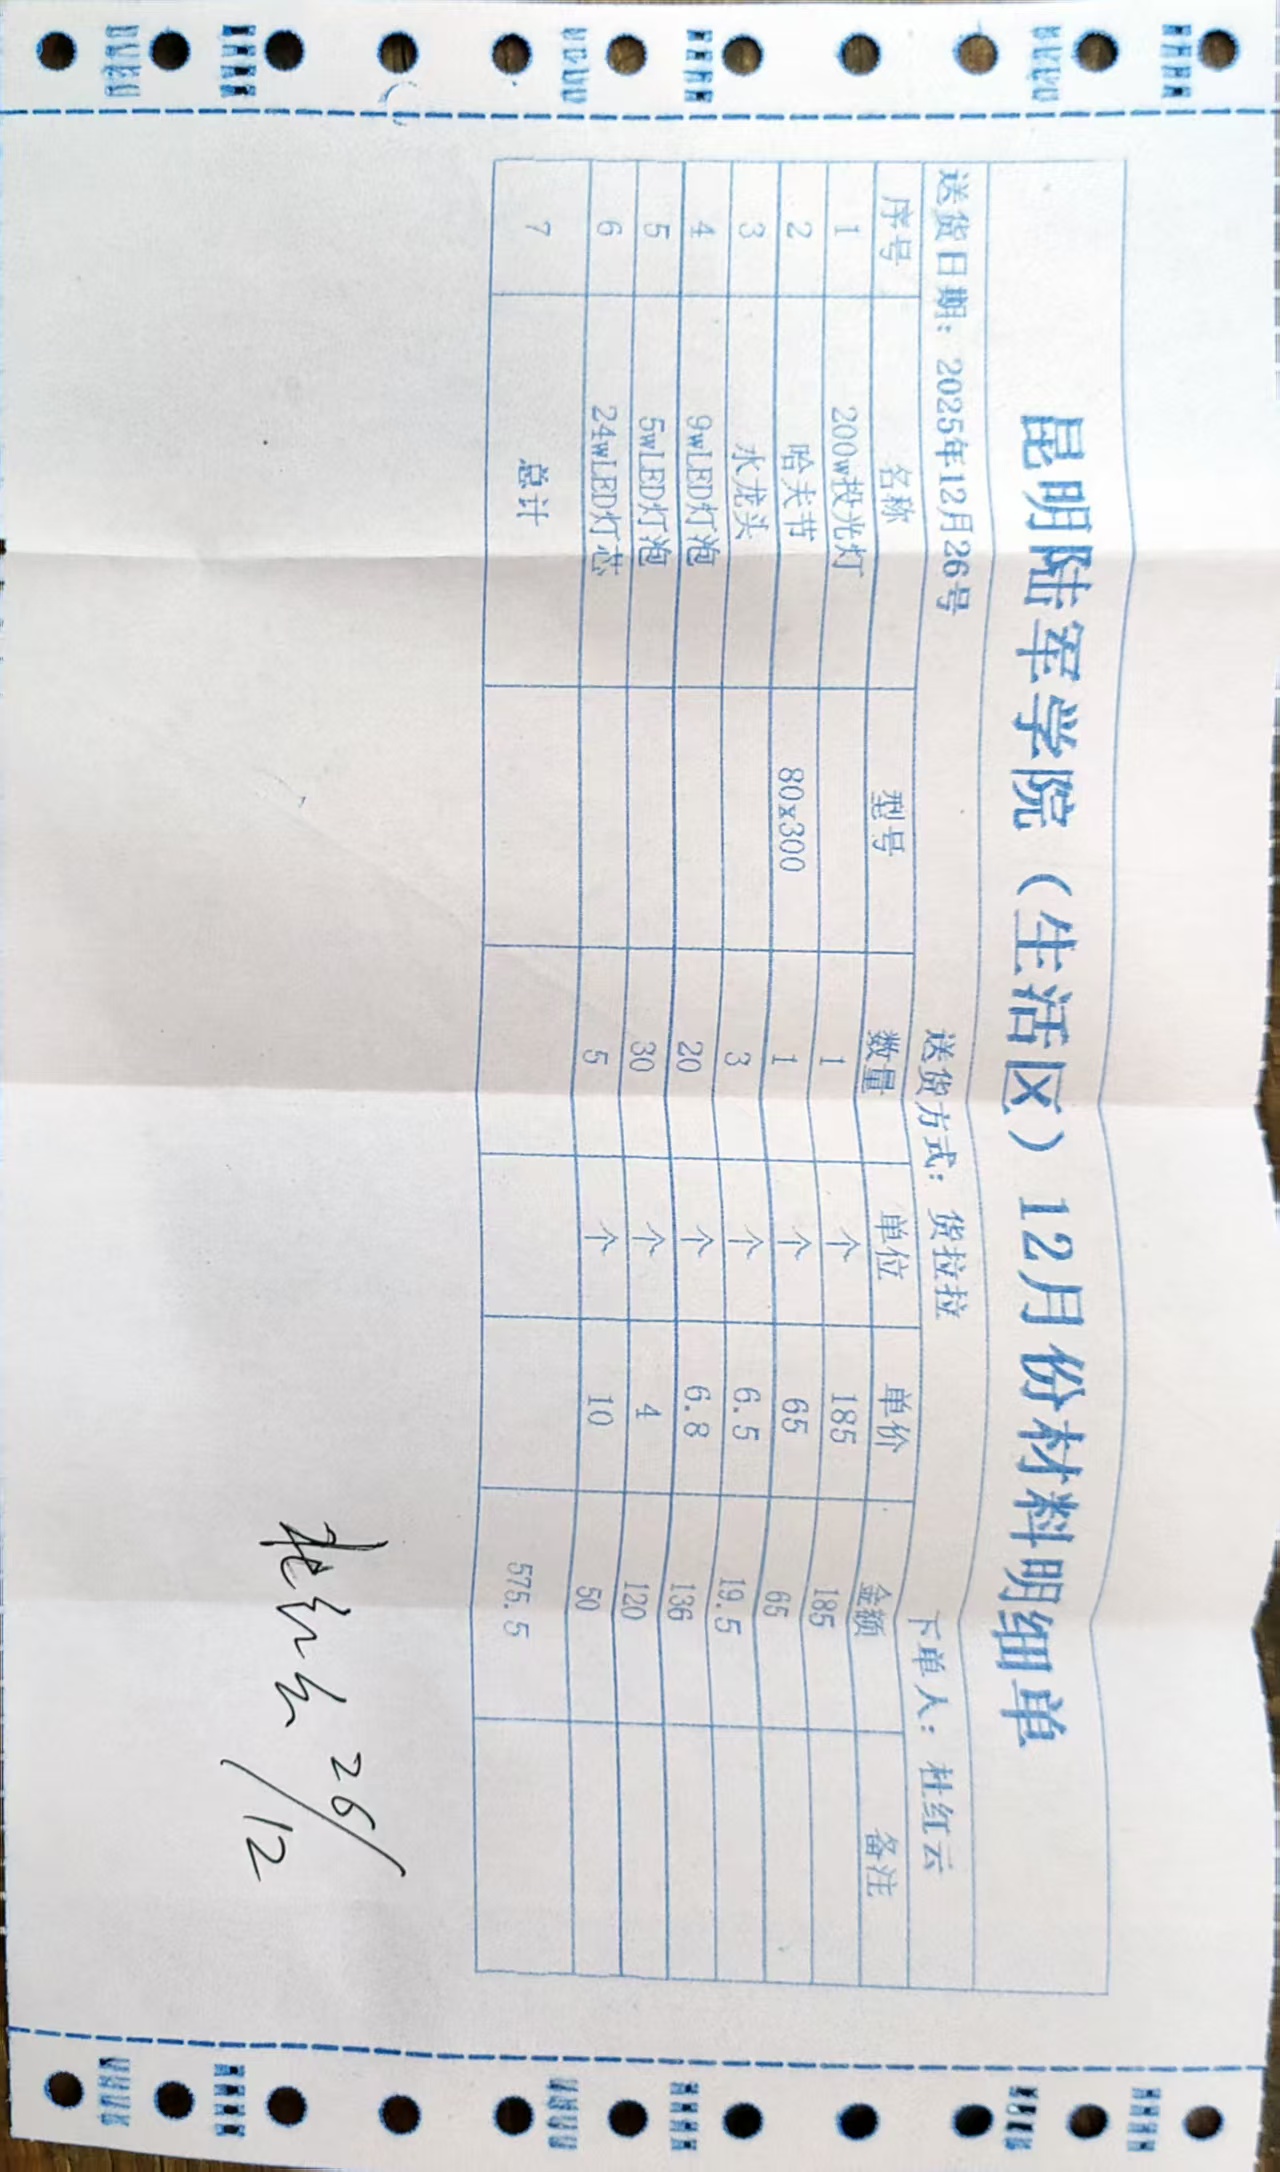 昆明陆军学院（生活区）12月份材料明细单
送货日期：2025年12月26号 送货方式：货拉拉 下单人：杜红云
序号 名称 型号 数量 单位 单价 金额 备注
1 200w投光灯 1 个 185 185
2 哈夫节 80x300 1 个 65 65
3 水龙头 3 个 6.5 19.5
4 9wLED灯泡 20 个 6.8 136
5 5wLED灯泡 30 个 4 120
6 24wLED灯芯 5 个 10 50
7 总计 575.5
杜红云 26/12